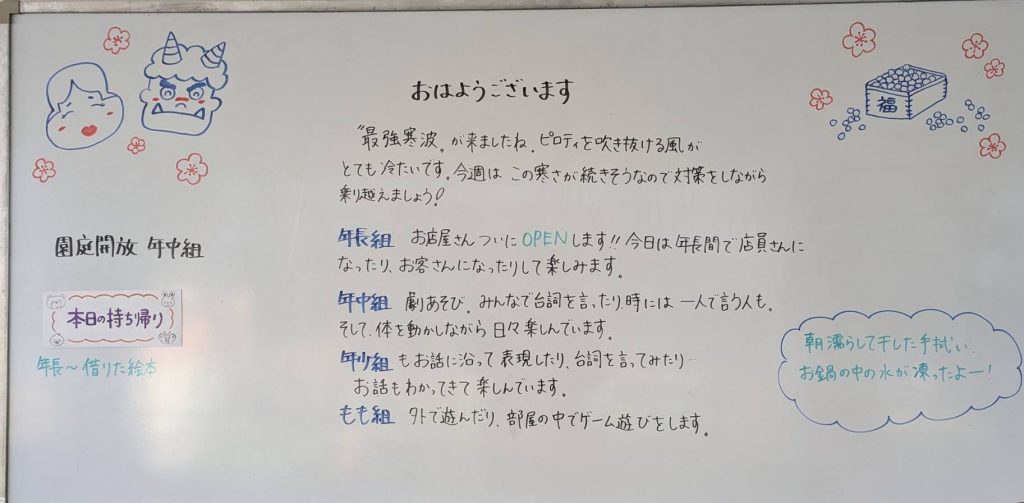 おはようございます
"最強寒波"が来ましたね。ピロティを吹き抜ける風が
とても冷たいです。今週は この寒さが続きそうなので対策をしながら
乗り越えましょう!
年長組 お店屋さん ついに OPENします!! 今日は年長間で店員さんに
なったり、お客さんになったりして楽しみます。
年中組 劇あそび。みんなで台詞を言ったり、時には 一人で言う人も。
そして、体を動かしながら 日々楽しんでいます。
年少組 もお話に沿って表現したり、台詞を言ってみたり…
お話もわかってきて楽しんでいます。
もも組 外で遊んだり、部屋の中でゲーム遊びをします。
園庭開放 年中組
本日の持ち帰り
年長〜借りた絵本
福
朝濡らして干した手拭い、
お鍋の中の水が凍ったよー!